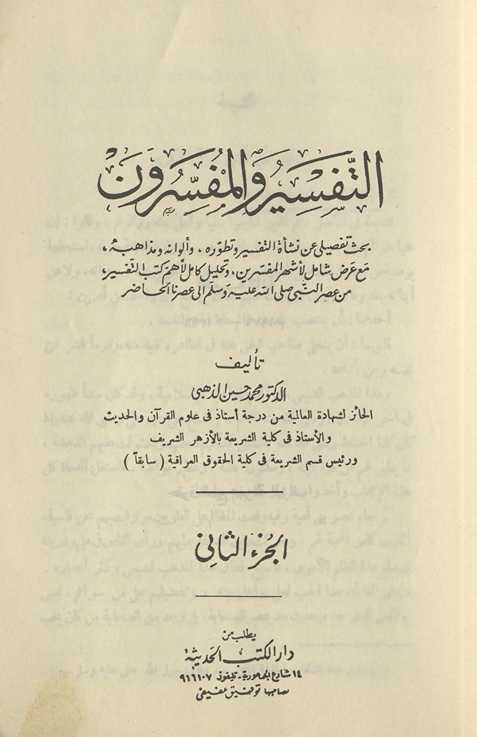 التفسير والمفسرون
بحث تفصيلى عن نشأة التفسير وتطوره ، وألوانه ومذاهبه ،
مع عرض شامل لأشهر المفسرين ، وتحليل كامل لأهم كتب التفسير ،
من عصر النبى صلى الله عليه وسلم الى عصرنا الحاضر
تأليف
الدكتور محمد حسين الذهبى
الحائز لشهادة العالمية من درجة أستاذ فى علوم القرآن والحديث
والأستاذ فى كلية الشريعة بالأزهر الشريف
ورئيس قسم الشريعة فى كلية الحقوق العراقية ( سابقاً )
الجزء الثانى
يطلب من
دار الكتب الحديثة
١٤ شارع الجمهورية - تليفون ٩١٦١٠٧
صاحبها توفيق عفيفى